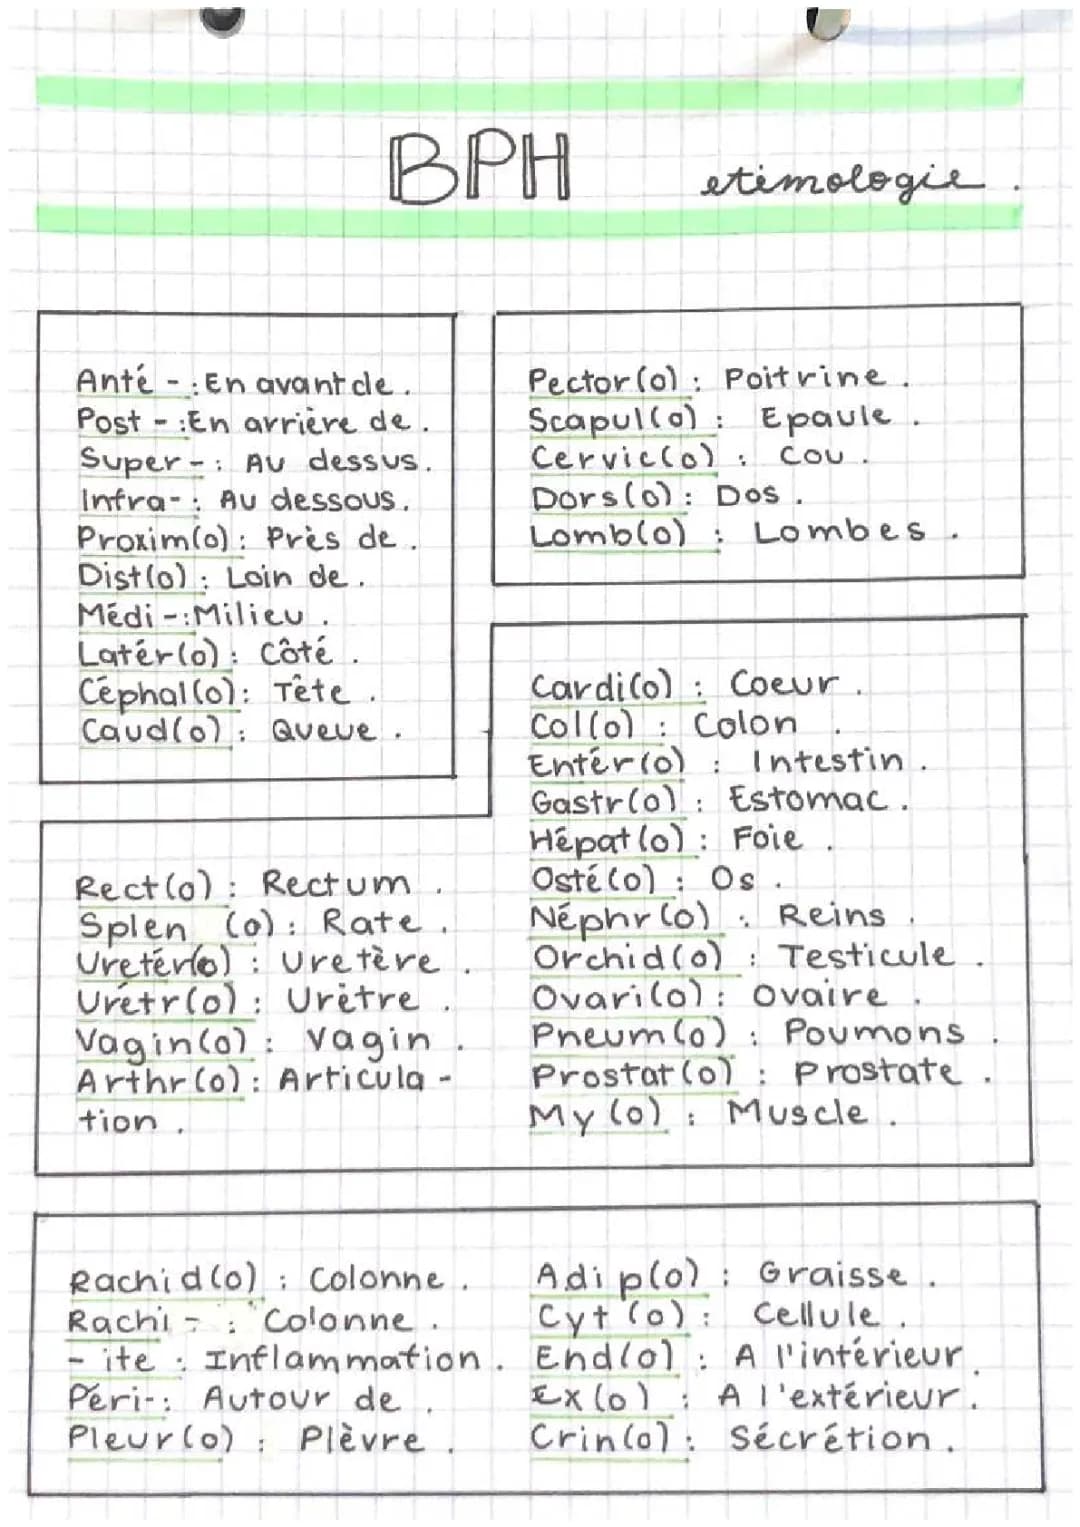 BPH etimologie.
Anté - : En avant de.
Post - : En arrière de.
Super - : Au dessus.
Infra- : Au dessous.
Proxim(o) : Près de.
Dist(o) : Loin de.
Médi - : Milieu.
Latér(o) : Côté.
Céphal(o) : Tête.
Caud(o) : Queue.
Pector(o) : Poitrine.
Scapul(o) : Epaule.
Cervic(o) : Cou.
Dors(o) : Dos.
Lomb(o) : Lombes.
Cardi(o) : Coeur.
Col(o) : Colon.
Entér(o) : Intestin.
Gastr(o) : Estomac.
Hépat(o) : Foie.
Osté(o) : Os.
Néphr(o) : Reins.
Orchid(o) : Testicule.
Ovari(o) : Ovaire.
Pneum(o) : Poumons.
Prostat(o) : Prostate.
My(o) : Muscle.
Rect(o) : Rectum.
Splen (o) : Rate.
Uretér(o) : Uretère.
Urétr(o) : Urètre.
Vagin(o) : Vagin.
Arthr(o) : Articula -
tion.
Rachid(o) : Colonne.
Rachi - : Colonne.
- ite : Inflammation.
Péri- : Autour de.
Pleur(o) : Plèvre.
Adip(o) : Graisse.
Cyt(o) : Cellule.
End(o) : A l'intérieur.
Ex(o) : A l'extérieur.
Crin(o) : Sécrétion.